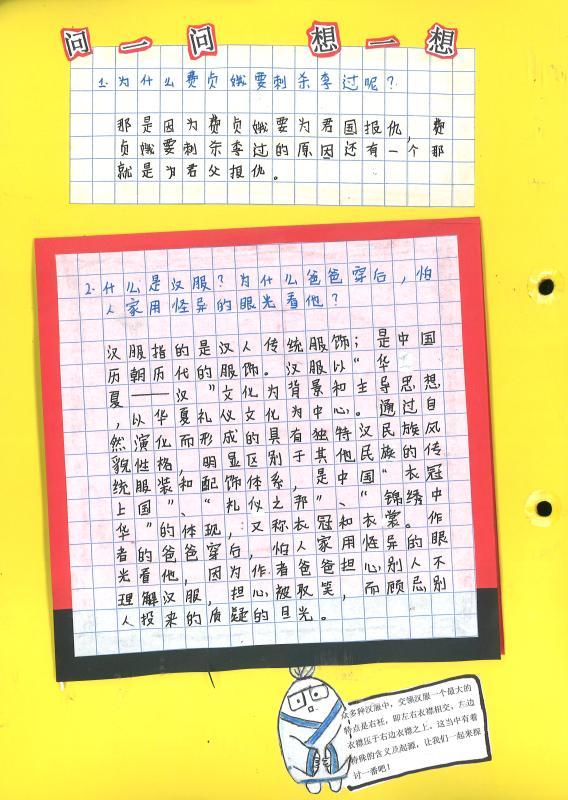 问一问 想一想
1. 为什么费贞娥要刺杀李过呢？
那是因为费贞娥要为君国报仇，费
贞娥要刺杀李过的原因还有一个那
就是为君父报仇。
2. 什么是汉服？为什么爸爸穿后，怕
人家用怪异的眼光看他？
汉服指的是汉人传统服饰；是中国
历朝历代的服饰。汉服以“华
夏——汉”文化为背景和主导思想
，以华夏礼仪文化为中心。通过自
然演化而形成的具有独特汉民族风
貌性格，明显区别于其他民族的传
统服装和配饰体系，是中国“衣冠
上国”、“礼仪之邦”、“锦绣中
华”的体现，又称衣冠和衣裳。作
者的爸爸穿后，怕人家用怪异的眼
光看他，因为作者爸爸担心别人不
理解汉服，担心被取笑，而顾忌别
人投来的质疑的目光。
众多种汉服中，交领汉服一个最大的
特点是右衽，即左右衣襟相交，左边
衣襟压于右边衣襟之上。这当中有着
特殊的含义及起源，让我们一起来探
讨一番吧！